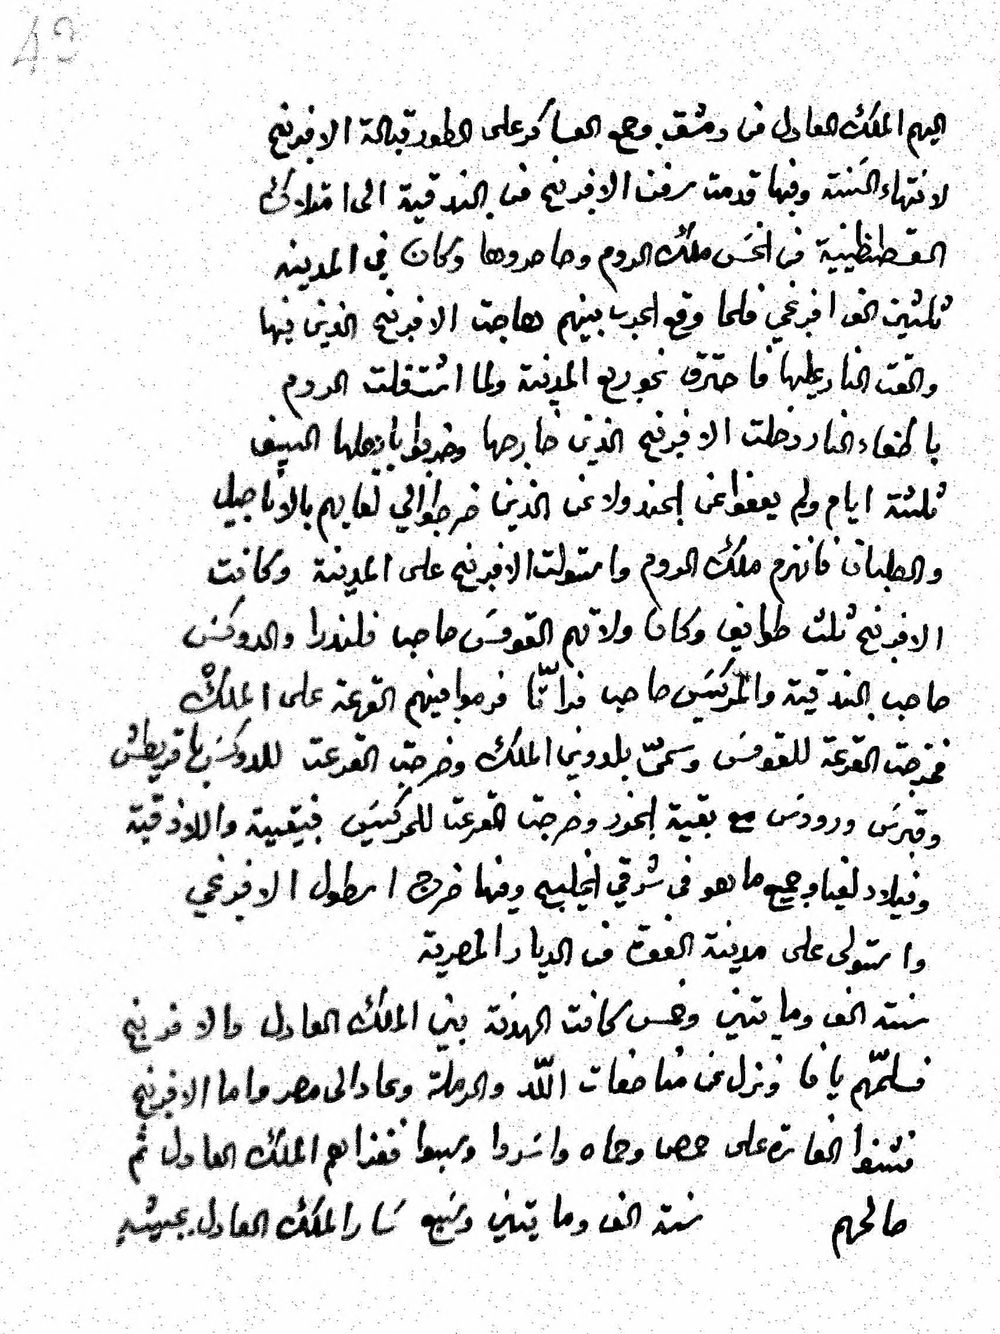 43
اليهم الملك العادل من دمشق وجمع العساكر على الطور قبالة الافرنج
لانتهاء السنة وفيها قدمت سفن الافرنج من البندقية الى امتلاك
القسطنطينية من انخس ملك الروم وحاصروها وكان في المدينه
ثلثين الف افرنجي فلما وقع الحرب بينهم هاجت الافرنج الذين فيها
والقت النار عليها فاحترق نحو ربع المدينة ولما اشتغلت الروم
باطفاء النار دخلت الافرنج الذين خارجها وضربوا باهلها السيف
ثلثة ايام ولم يعفوا عن الجند ولا عن الذين خرجوا الي لقايهم بالاناجيل
والصلبان فانهزم ملك الروم واستولت الافرنج على المدينة وكانت
الافرنج ثلث طوايف وكان ولاتهم القومس صاحب فلندرا والدوكس
صاحب البندقية والمركيس صاحب فرانّا فرموا بينهم القرعة على الملك
فخرجت القرعة للقومس وسمىّ بلدوين الملك وخرجت القرعت للدوكس باقريطش
وقبرس ورودس مع بقية الجزر وخرجت القرعت للمركيس بنيقيية واللاذقية
وفيلادلفيا وجميع ما هو في شرقي الخليج وفيها خرج اسطول الافرنجي
واستولى على مدينة الفوة من الديار المصرية
سنته الف ومايتين وخمس كانت الهدنة بين الملك العادل والافرنج
فسلمّهم يافا ونزل عن مناصفات اللّد والرملة وعاد الى مصر واما الافرنج
فشنوا الغارة على حمص وحماه واسروا وسبوا فغزاهم الملك العادل ثم
صالحهم سنته الف ومايتين وسبع سار الملك العادل بجيشه